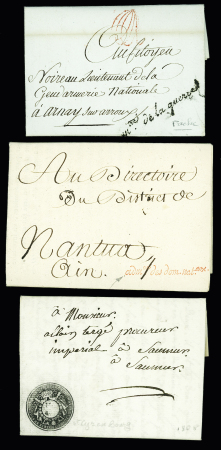 Au Citoyen
Noireau Lieutenant de la
Gendarmerie Nationale
à arnay sur arroux
de la guerre
Au Directoire
Du District de
Nantua
Ain
à Monsieur
procureur
imperial à Saumur
à Saumur